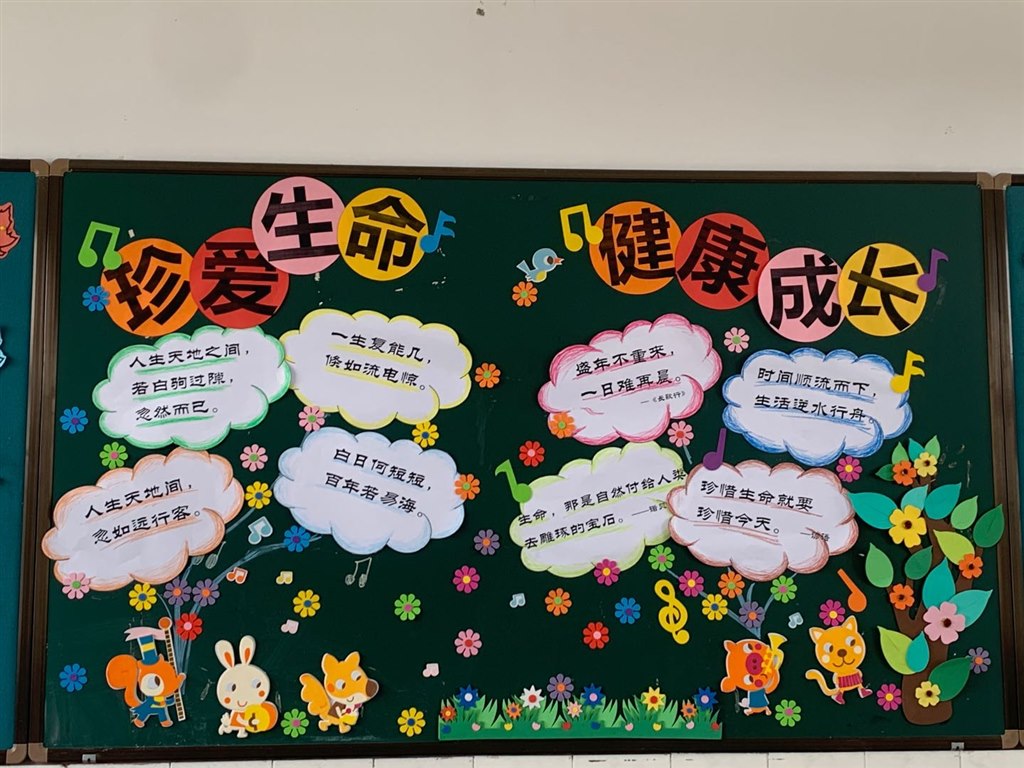 珍爱生命
健康成长
人生天地之间，
若白驹过隙，
忽然而已。
一生复能几，
倏如流电惊。
人生天地间，
忽如远行客。
白日何短短，
百年若易海。
盛年不重来，
一日难再晨。
—《长歌行》
时间顺流而下，
生活逆水行舟。
生命，那是自然付给人类
去雕琢的宝石。
珍惜生命就要
珍惜今天。—谚语